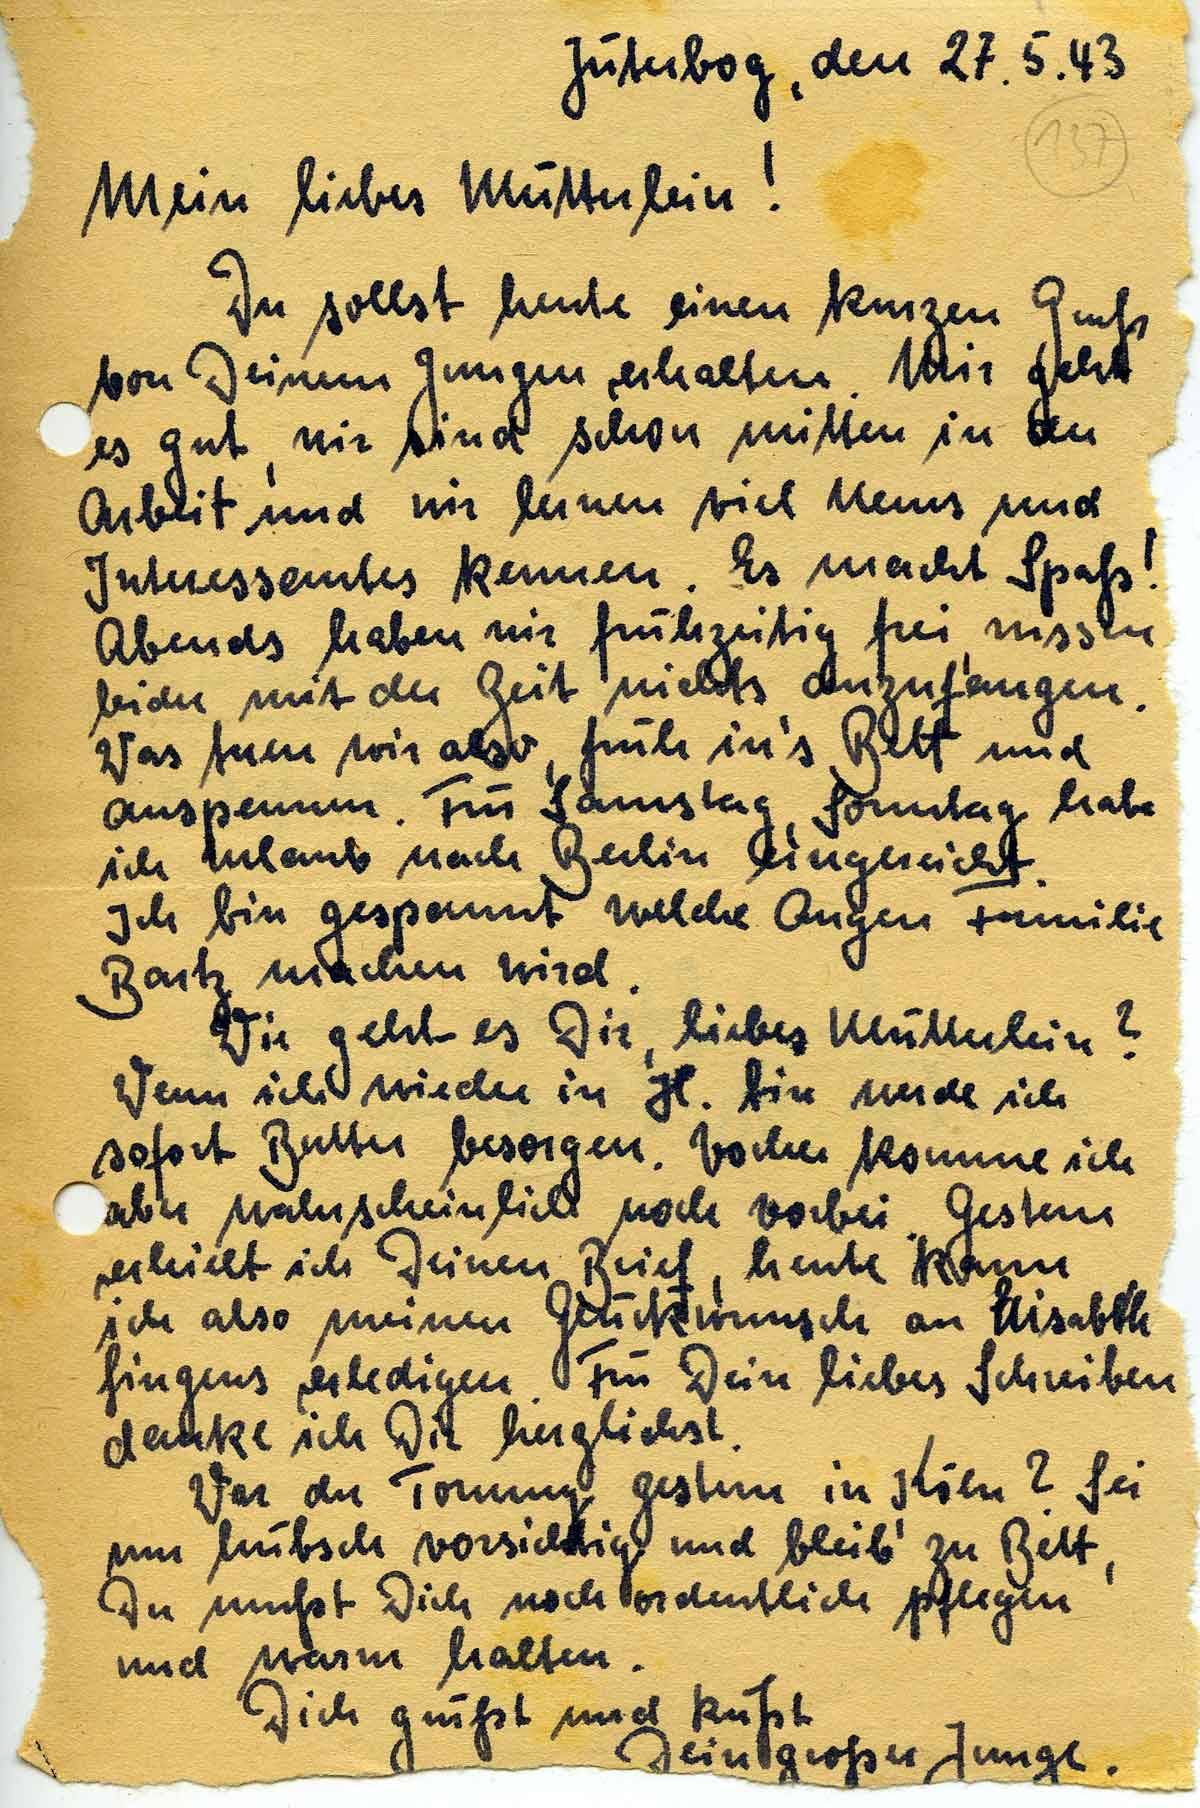 Jüterbog, den 27.5.43
137
Mein liebes Mütterlein!
Du sollst heute einen kurzen Gruß
von Deinem Jungen erhalten. Mir geht
es gut, wir sind schon mitten in der
Arbeit und wir lernen viel Neues und
Interessantes kennen. Es macht Spaß!
Abends haben wir frühzeitig frei, wissen
leider mit der Zeit nichts anzufangen.
Was tuen wir also, früh in's Bett und
ausspannen. Für Samstag, Sonntag habe
ich Urlaub nach Berlin eingereicht.
Ich bin gespannt welche Augen Familie
Bartz machen wird.
Wie geht es Dir, liebes Mütterlein?
Wenn ich wieder in H. bin werde ich
sofort Butter besorgen. Vorher komme ich
aber wahrscheinlich noch vorbei. Gestern
erhielt ich Deinen Brief, heute kann
ich also meinen Glückwunsch an Elisabeth
fingens erledigen. Für Dein liebes Schreiben
danke ich Dir herzlichst.
War der Tommy gestern in Köln? Sei
nur hübsch vorsichtig und bleib' zu Bett,
Du mußt Dich noch ordentlich pflegen
und warm halten.
Dich grüßt und küßt
Dein großer Junge.